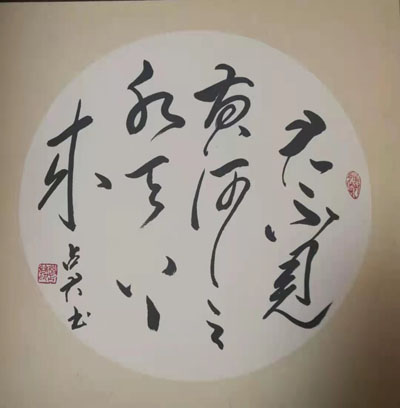 君不見
黄河之
水天上
来
占君书